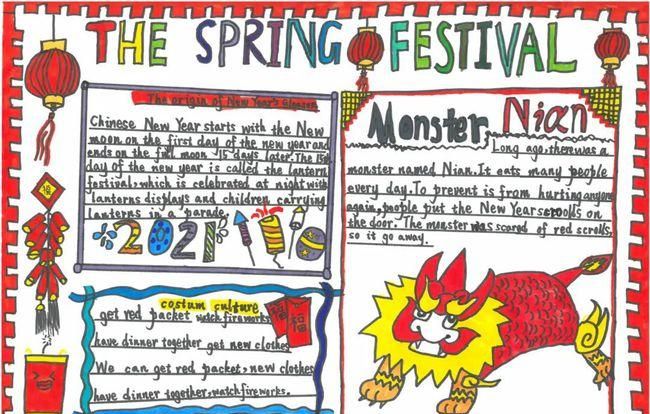 THE SPRING FESTIVAL
The origin of New Year's Gleason
Chinese New Year starts with the New
moon on the first day of the new year and
ends on the full moon 15 days later. The 15th
day of the new year is called the lantern
festival, which is celebrated at night with
lanterns displays and children carrying
lanterns in a parade.
2021
costum culture
get red packet watch fireworks
have dinner together get new clothes
We can get red packet, new clothes
have dinner together, watch fireworks.
Monster Nian
Long ago, there was a
monster named Nian. It eats many people
every day. To prevent is from hurting anyone
again, people put the New Year scrolls on
the door. The monster was scared of red scrolls,
so it go away.
福